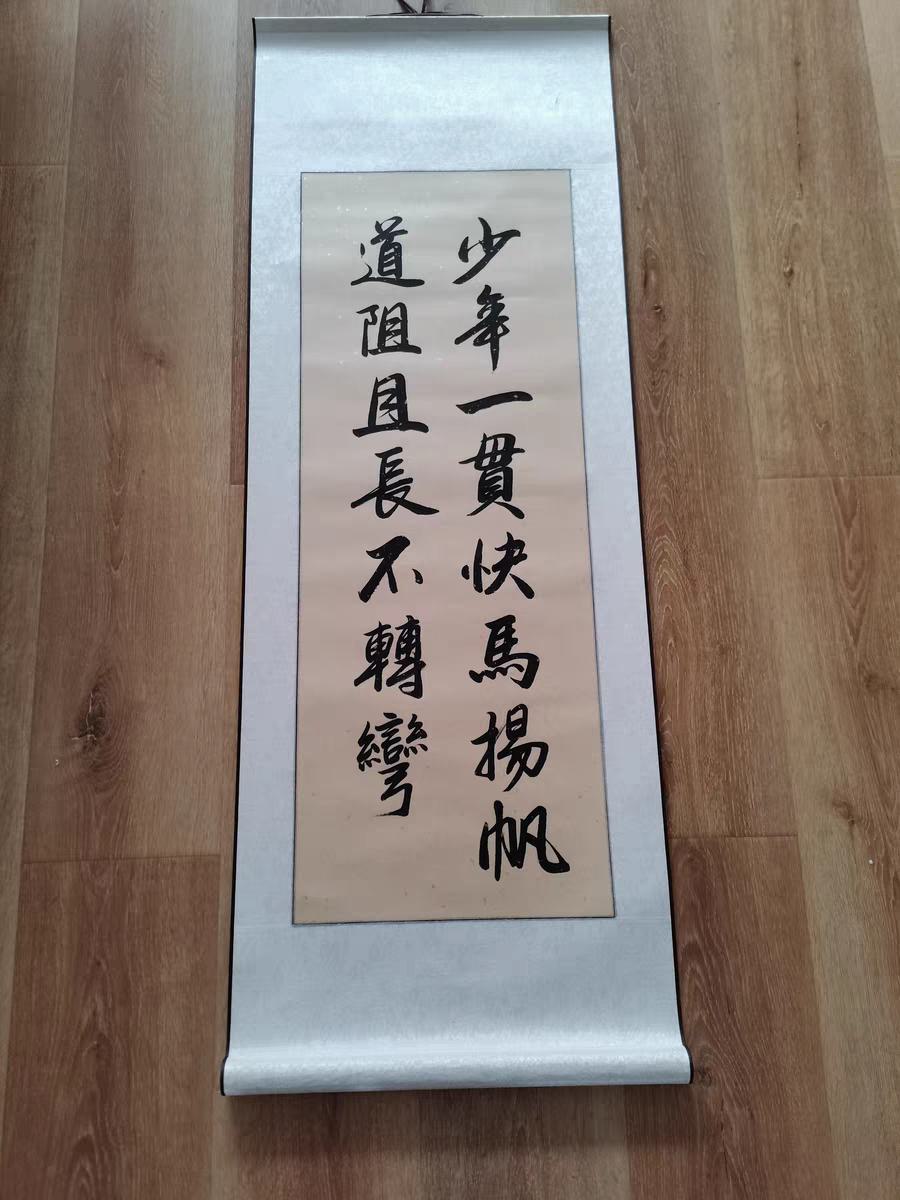 少年一貫快馬揚帆
道阻且長不轉彎